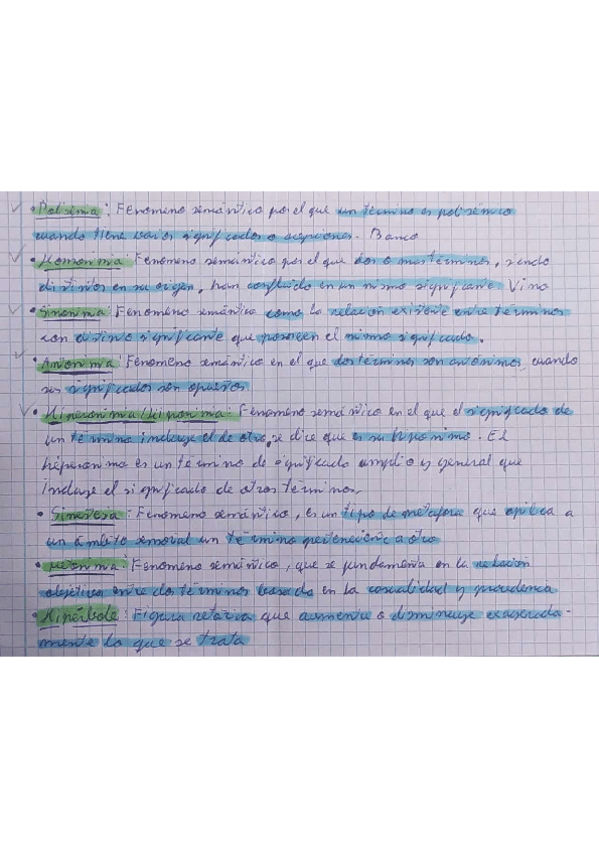 • Polisemia: Fenomeno semántico por el que un término es polisémico
cuando tiene varios significados o acepciones. Banco
• Homonimia: Fenomeno semántico por el que dos o mas términos, siendo
distintos en su origen, han confluido en un mismo significante Vino
• Sinonimia: Fenomeno semántico como la relación existente entre términos
con distinto significante que poseen el mismo significado.
• Antonimia: Fenomeno semántico en el que dos terminos son antónimos, cuando
sus significados son opuestos
• Hiperonimia/Hiponimia: Fenomeno semántico en el que el significado de
un término incluye el de otro, se dice que es su hiponimo. El
hiperonimo es un término de significado amplio y general que
incluye el significado de otros términos.
• Sinestesia: Fenomeno semántico, es un tipo de metafora que aplica a
un ámbito sensorial un término perteneciente a otro
• Metonimia: Fenomeno semántico, que se fundamenta en la relación
objetiva entre dos términos basada en la causalidad y procedencia
• Hipérbole: Figura retórica que aumenta o disminuye exagerada-
mente lo que se trata